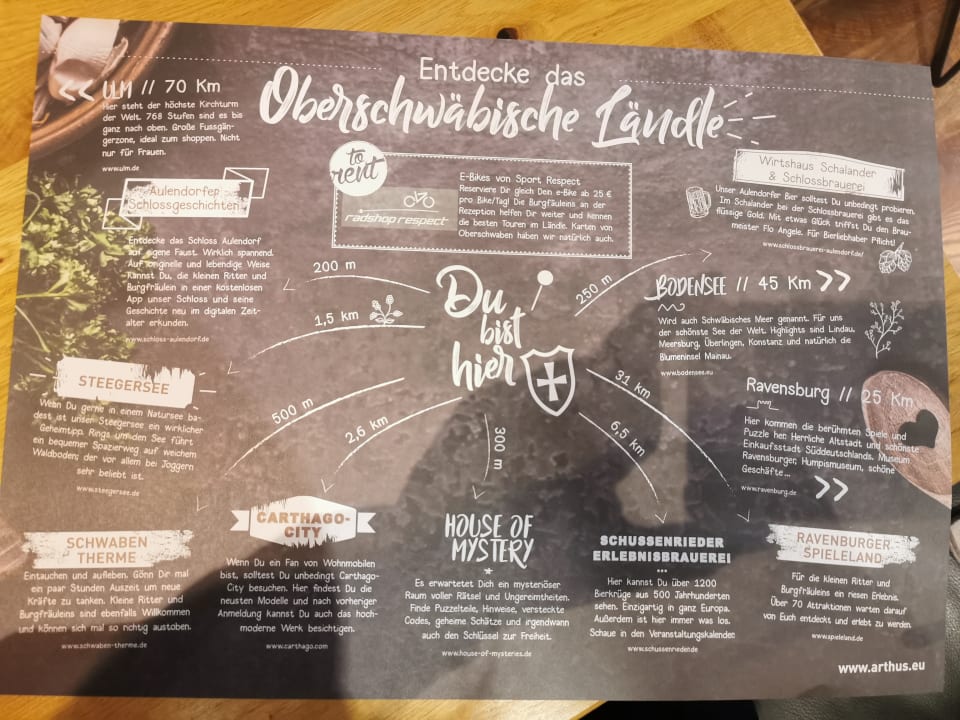 Entdecke das
Oberschwäbische Ländle
<< ULM // 70 Km
Hier steht der höchste Kirchturm
der Welt. 768 Stufen sind es bis
ganz nach oben. Große Fussgän-
gerzone, ideal zum shoppen. Nicht
nur für Frauen.
www.ulm.de
to
rent
radshop respect
E-Bikes von Sport Respect
Reserviere Dir gleich Dein e-Bike ab 25 €
pro Bike/Tag! Die Burgfräuleins an der
Rezeption helfen Dir weiter und kennen
die besten Touren im Ländle. Karten von
Oberschwaben haben wir natürlich auch.
Wirtshaus Schalander
& Schlossbrauerei
Unser Aulendorfer Bier solltest Du unbedingt probieren.
Im Schalander bei der Schlossbrauerei gibt es das
flüssige Gold. Mit etwas Glück triffst Du den Brau-
meister Flo Angele. Für Bierliebhaber Pflicht!
www.schlossbrauerei-aulendorf.de/
Aulendorfer
Schlossgeschichten
Entdecke das Schloss Aulendorf
auf eigene Faust. Wirklich spannend.
Auf originelle und lebendige Weise
kannst Du, die kleinen Ritter und
Burgfräulein in einer kostenlosen
App unser Schloss und seine
Geschichte neu im digitalen Zeit-
alter erkunden.
www.schloss-aulendorf.de
200 m
1,5 km
500 m
2,6 km
300 m
6,5 km
31 km
250 m
Du
bist
hier
BODENSEE // 45 Km >>
Wird auch Schwäbisches Meer genannt. Für uns
der schönste See der Welt. Highlights sind Lindau,
Meersburg, Überlingen, Konstanz und natürlich die
Blumeninsel Mainau.
www.bodensee.eu
STEEGERSEE
Wenn Du gerne in einem Natursee ba-
dest ist unser Steegersee ein wirklicher
Geheimtipp. Rings um den See führt
ein bequemer Spazierweg auf weichem
Waldboden; der vor allem bei Joggern
sehr beliebt ist.
www.steegersee.de
Ravensburg // 25 Km
Hier kommen die berühmten Spiele und
Puzzle her. Herrliche Altstadt und schönste
Einkaufsstadt Süddeutschlands. Museum
Ravensburger, Humpismuseum, schöne
Geschäfte...
www.ravensburg.de >>
SCHWABEN
THERME
Eintauchen und aufleben. Gönn Dir mal
ein paar Stunden Auszeit um neue
Kräfte zu tanken. Kleine Ritter und
Burgfräuleins sind ebenfalls Willkommen
und können sich mal so richtig austoben.
www.schwaben-therme.de
CARTHAGO-
CITY
Wenn Du ein Fan von Wohnmobilen
bist, solltest Du unbedingt Carthago-
City besuchen. Hier findest Du die
neusten Modelle und nach vorheriger
Anmeldung kannst Du auch das hoch-
moderne Werk besichtigen.
www.carthago.com
HOUSE OF
MYSTERY
Es erwartetet Dich ein mysteriöser
Raum voller Rätsel und Ungereimtheiten.
Finde Puzzleteile, Hinweise, versteckte
Codes, geheime Schätze und irgendwann
auch den Schlüssel zur Freiheit.
www.house-of-mysteries.de
SCHUSSENRIEDER
ERLEBNISBRAUEREI
...
Hier kannst Du über 1200
Bierkrüge aus 500 Jahrhunderten
sehen. Einzigartig in ganz Europa.
Außerdem ist hier immer was los.
Schaue in den Veranstaltungskalender.
www.schussenrieder.de
RAVENBURGER
SPIELELAND
Für die kleinen Ritter und
Burgfräulein ein riesen Erlebnis.
Über 70 Attraktionen warten darauf
von Euch entdeckt und erlebt zu werden.
www.spieleland.de
www.arthus.eu